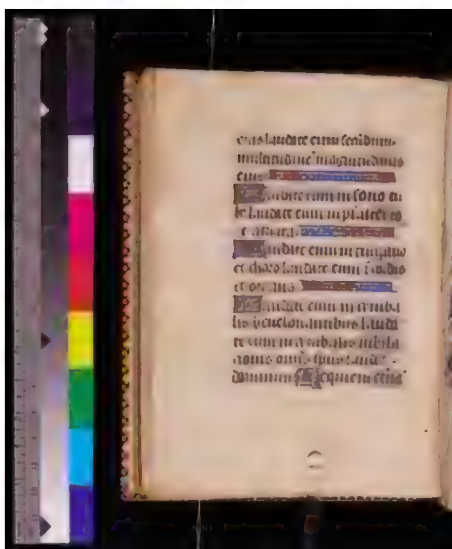 eius laudate eum secūdum
multitudinē magnitudinis
eius
Laudate eum in sono tu
be laudate eum in psalterio
et cithara
Laudate eum in timpano
et choro laudate eum ī cordis
et organo
Laudate eum in cimba
lis bene sonantibus lauda
te eum in cimbalis iubila
tionis omīs spūs laudet
dominum Requiem eternā